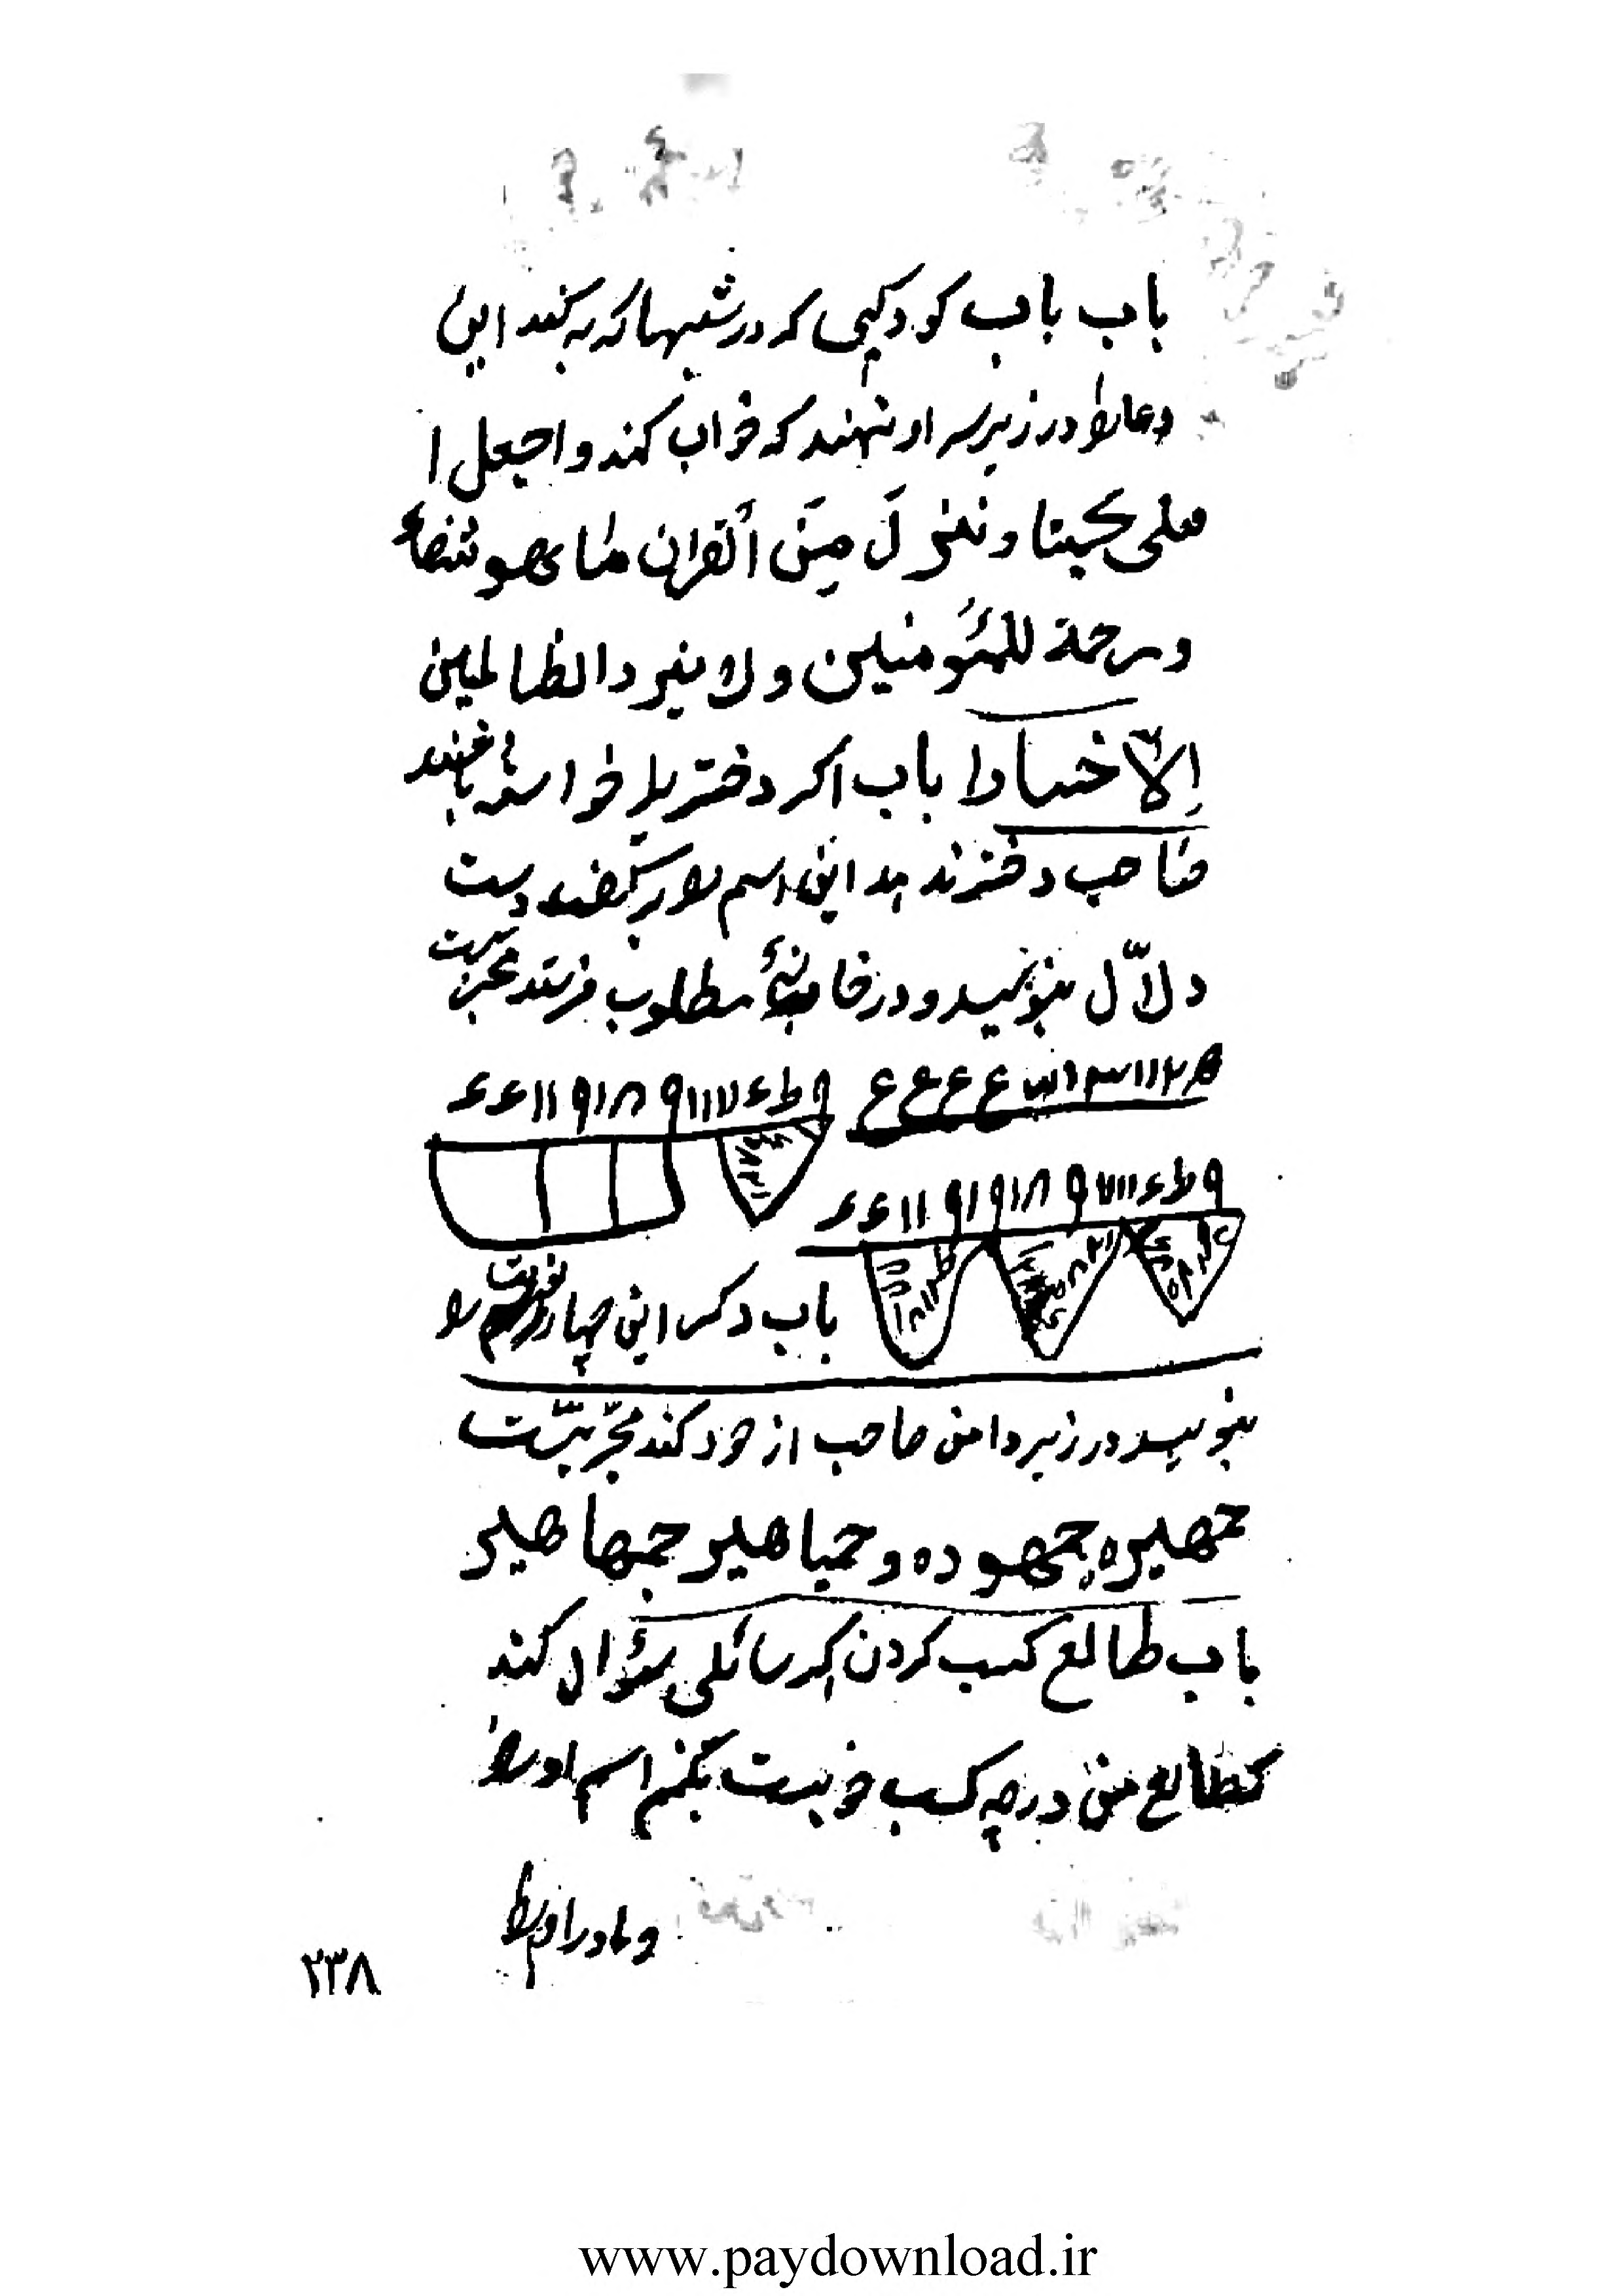 باب باب کودکیی که در شبهاکریه کند این
دعارا در زیر سر او نهند که خواب کند و اجعل ا
علی یحینا و ننزل مِنَ اُلقران ما هو شفاء
ورحمة للمئومنین ولا یزیدا الظالمین
اِلاّ خسارا باب اکر دختریرا خواسته باشند
صاحب دختر ندهد این اسم را بر کف دست
دلاّل بنویسد و در خانهٔ مطلوب فرستد مجربست
۱۱۲ ۱۱ ع ع ع ع
۹ ط ۶ ۷ ۱۱ ۹ ۸ ۱ ۹ ۱۱ ۶ ۶
۹ ط ۶ ۱۱ ۷ ۹ ۸ ۱ ۹ ۱ ۹ ۱۱ ۶ ۶
باب دکر این چهار را
بنویسد در زیر دامن صاحب از خود کند مجرّبّست
جمهیره جمهوده و جباهیر جهاهیر
باب طالع کسب کردن اکر سائلی سؤال کند
کطالع من در چه کسب خوبست بکنم اسم او را
و مادر او را
۲۳۸
www.paydownload.ir